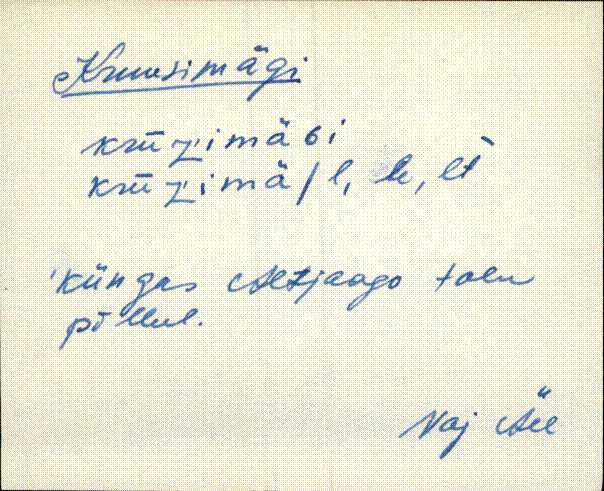 Kruusimägi
krūzimäɢi
krūzimä/l, le, lt
küngas Altjaago talu
põllul.
Vaj